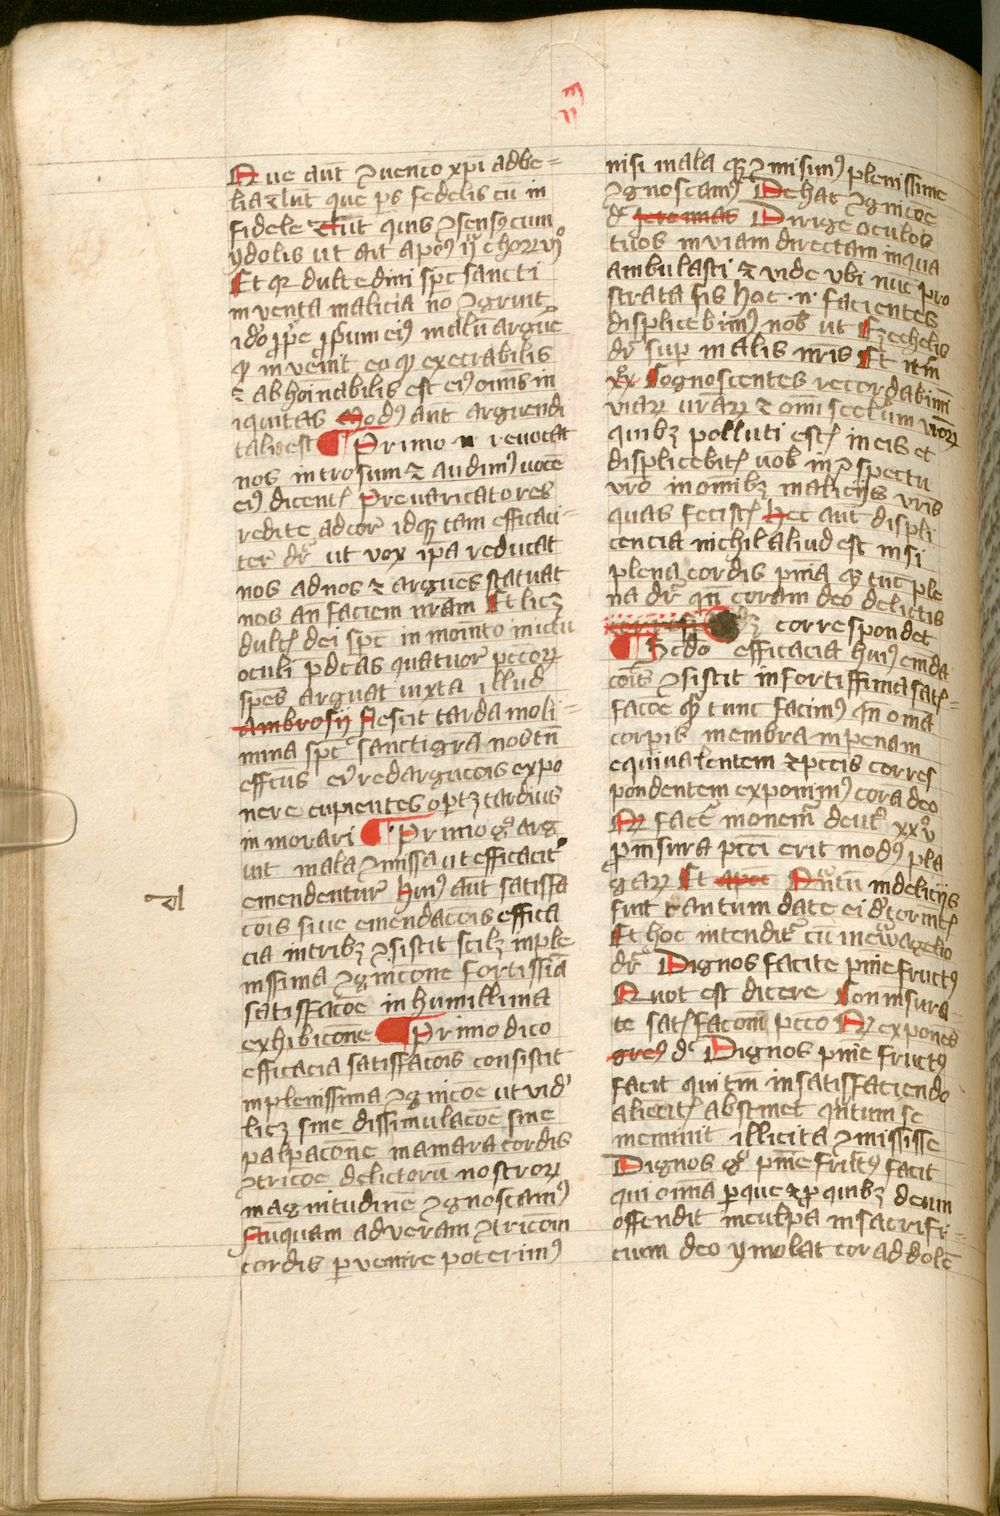 Que aut ꝯuento xpi adbe=
lia
que ps fedelis cu in
fidele
quis ꝯsensꝯ cum
ydolis ut ait
Et qꝛ dulcedini spc sancti
inuenta malicia no ꝯgruit
malu argue
inuenit eo qꝫ execrabilis
ꝛ abhoinabilis est
in
iquitas Modꝯ aut arguendi
talis est ¶ Primo n reuocat
nos introsum ꝛ audimꝯ uoce
eiꝯ dicent Preuaricatores
redite ad cor idqꝫ tam efficaci=
ter dr ut vox ipa reducat
nos ad nos ꝛ argues statuat
nos an faciem nram Et licꝫ
dei spc in moīto ictu
oculi pdcas quatuor pccoꝝ
spes arguat iuxta illud
Ambrosij Nescit tarda moli=
mina spc sancti gra nos tn
effcus
redargucois expo
nere cupientes optꝫ tardius
inmorari ¶ Primo gͦ arg
uit mala ꝯmissa ut efficacit
emendentur Huiꝯ aut satisfa
cois siue emendacois effica
cia in tribꝫ ꝯsistit scilꝫ in ple
nissima ꝯgnicone fortissia
satisfacoe in humillima
exhibicone ¶ Primo dico
efficacia satisfacois consistit
in plenissima ꝯgnicoe ut vid
licꝫ sine dissimulacoe sine
palpacone in amara cordis
ꝯtricoe delictoru nostroꝝ
magnitudine ꝯgnoscamꝯ
Nuquam ad veram ꝯtricom
cordis puenire poterimꝯ
nisi mala
ꝯmisimꝯ plenissime
ꝯgnoscamꝯ De hac ꝯgnicoe
d Jeremias Dirige oculos
tuos in viam directam in qua
ambulasti ꝛ vide vbi nuc pro
strata sis hoc .n. facientes
displicebimꝯ nob ut Ezechelis
dr sup malis nris Et itm
xx Cognoscentes recordabim
viaꝝ vraꝝ ꝛ omi scelum vroꝝ
quibꝫ polluti estꝭ in eis et
displicebitꝭ uob in ꝯspectu
vro in omibꝫ malicijs vris
quas fecistꝭ Hec aut displi
cencia nichil aliud est nisi
plena cordis pnia qꝫ tuc ple
na dr qn coram deo delictis
correspondet
¶ Scdo efficacia huiꝯ emda
cois ꝯsistit in fortissima satꝭ=
faccoe
tunc facimꝯ qn oma
corpis membra in penam
equiualentem ꝛ pccis corres
pondentem exponimꝯ cora deo
monem deut xxv
pmsura pcci erit modꝯ pla
gaꝝ Et apoc Qntu in delicijs
fuit tantum date ei
Et hoc intendit cu in ewagelio
dr Dignos facite pnie fructꝯ
Quot est dicere Conmsura=
te satꝭfacom pcco
expones
gregꝯ d Dignos pnie fructꝯ
facit qui tm in satisfaciendo
abstinet qntum se
meminit illicita ꝯmississe
Dignos gͦ pnie fructꝯ facit
qui omia p que ꝛ p quibꝫ deum
offendit in culpa in sacrifi=
cium deo ymolat cor ad dole